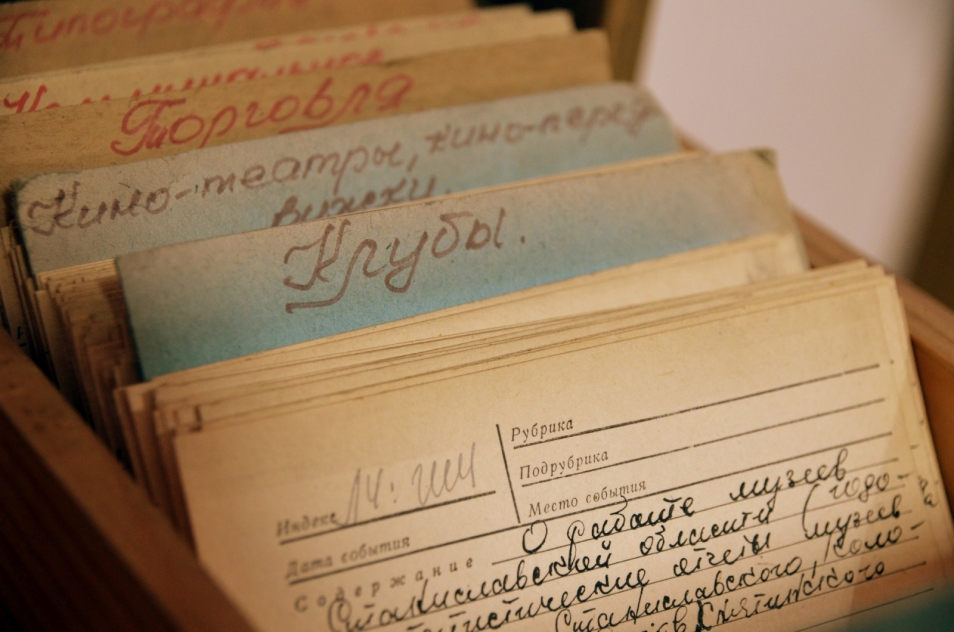 Типография
Торговля
Кино-театры, кино-перед-
вижки.
Клубы.
Рубрика
Подрубрика
Индекс 14:
Место события
Дата события
Содержание О работе музеев
Станиславской области (годо-
статистические отчеты музеев
Станиславского, Коло-
Снятинского